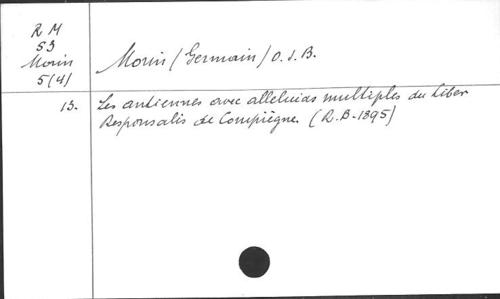 R M
53
Morin
5(4)
Morin / Germain / O. S. B.
13. Les antiennes avec alleluias multiples du Liber
Responsalis de Compiègne. (R.B-1895)